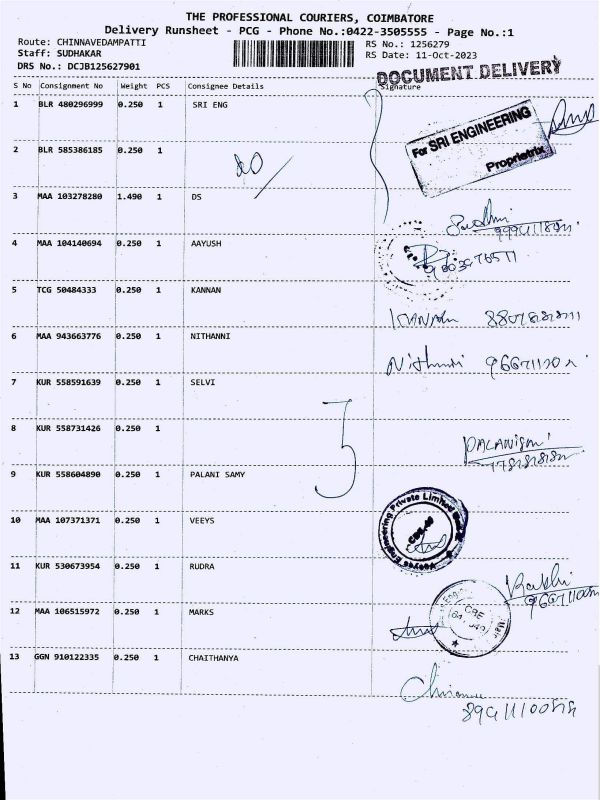 THE PROFESSIONAL COURIERS, COIMBATORE
Delivery Runsheet - PCG - Phone No.:0422-3505555 - Page No.:1
Route: CHINNAVEDAMPATTI RS No.: 1256279
Staff: SUDHAKAR RS Date: 11-Oct-2023
DRS No.: DCJB125627901
DOCUMENT DELIVERY
S No Consignment No Weight PCS Consignee Details Signature
1 BLR 480296999 0.250 1 SRI ENG
For SRI ENGINEERING
Proprietrix
2 BLR 585386185 0.250 1
3 MAA 103278280 1.490 1 DS
4 MAA 104140694 0.250 1 AAYUSH
5 TCG 50484333 0.250 1 KANNAN
6 MAA 943663776 0.250 1 NITHANNI
7 KUR 558591639 0.250 1 SELVI
3
8 KUR 558731426 0.250 1
9 KUR 558604890 0.250 1 PALANI SAMY
10 MAA 107371371 0.250 1 VEEYS
Engineering Private Limited
11 KUR 530673954 0.250 1 RUDRA
Rakhi
12 MAA 106515972 0.250 1 MARKS
CBE
13 GGN 910122335 0.250 1 CHAITHANYA